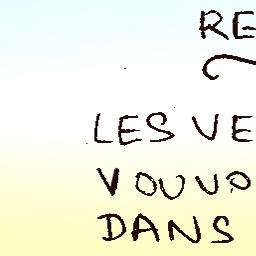 RE
LES VE
VOUVO
DANS